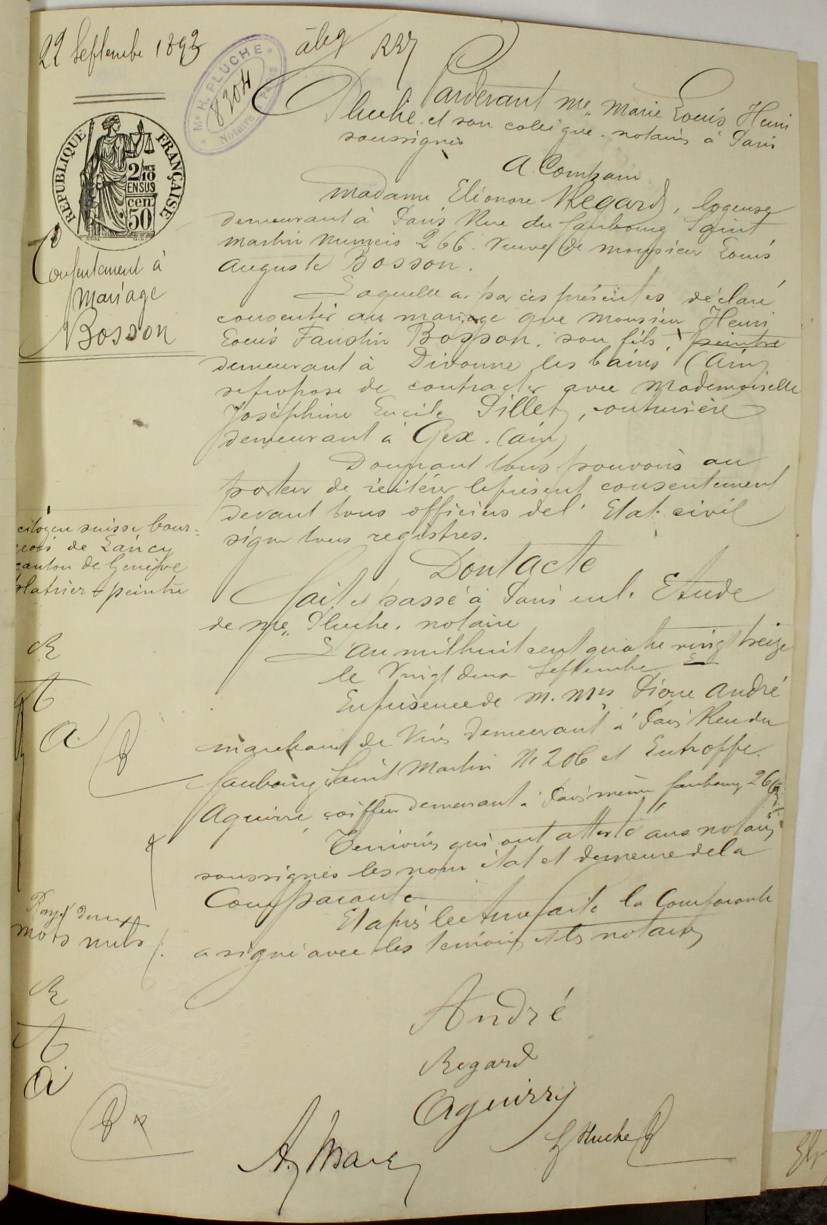 22 Septembre 1893
227
Me H. PLUCHE
8304
Notaire
Pardevant me Marie Louis Henri
Pluche et son collègue, notaires à Paris
soussignés
A Comparu
Madame Eléonore Regard, logeuse
demeurant à Paris Rue du faubourg Saint
Martin numéro 266. Veuve de monsieur Louis
Auguste Bosson.
RÉPUBLIQUE FRANÇAISE
2/10 EN SUS
50 cen
Consentement à
Mariage
Bosson
Laquelle a par ces présentes déclaré
consentir au mariage que monsieur Henri
Louis Faustin Bosson, son fils, peintre
demeurant à Divonne les bains (Ain)
se propose de contracter avec Mademoiselle
Joséphine Lucile Dillet, couturière
demeurant à Gex. (ain)
Donnant tous pouvoirs au
porteur de réitérer le présent consentement
devant tous officiers de l'Etat civil
signer tous registres.
citoyen suisse bour-
geois de Lancy
canton de Genève
platrier & peintre
R
A
A
Dont acte
Fait et passé à Paris en l'Etude
de me Pluche, notaire
L'an mil huit cent quatre vingt treize
le Vingt deux Septembre
En présence de M. Mrs Pierre André
marchand de Vins demeurant à Paris Rue du
faubourg Saint Martin No 206 et
Aguirre, coiffeur demeurant à Paris même faubourg 266
Témoins qui ont attesté aux notaires
soussignés les nom état et demeure de la
Comparante
Et après lecture faite la Comparante
a signé avec les témoins et les notaires
Rayé deux
mots nuls
R
A
A
André
Regard
Aguirre
H Pluche